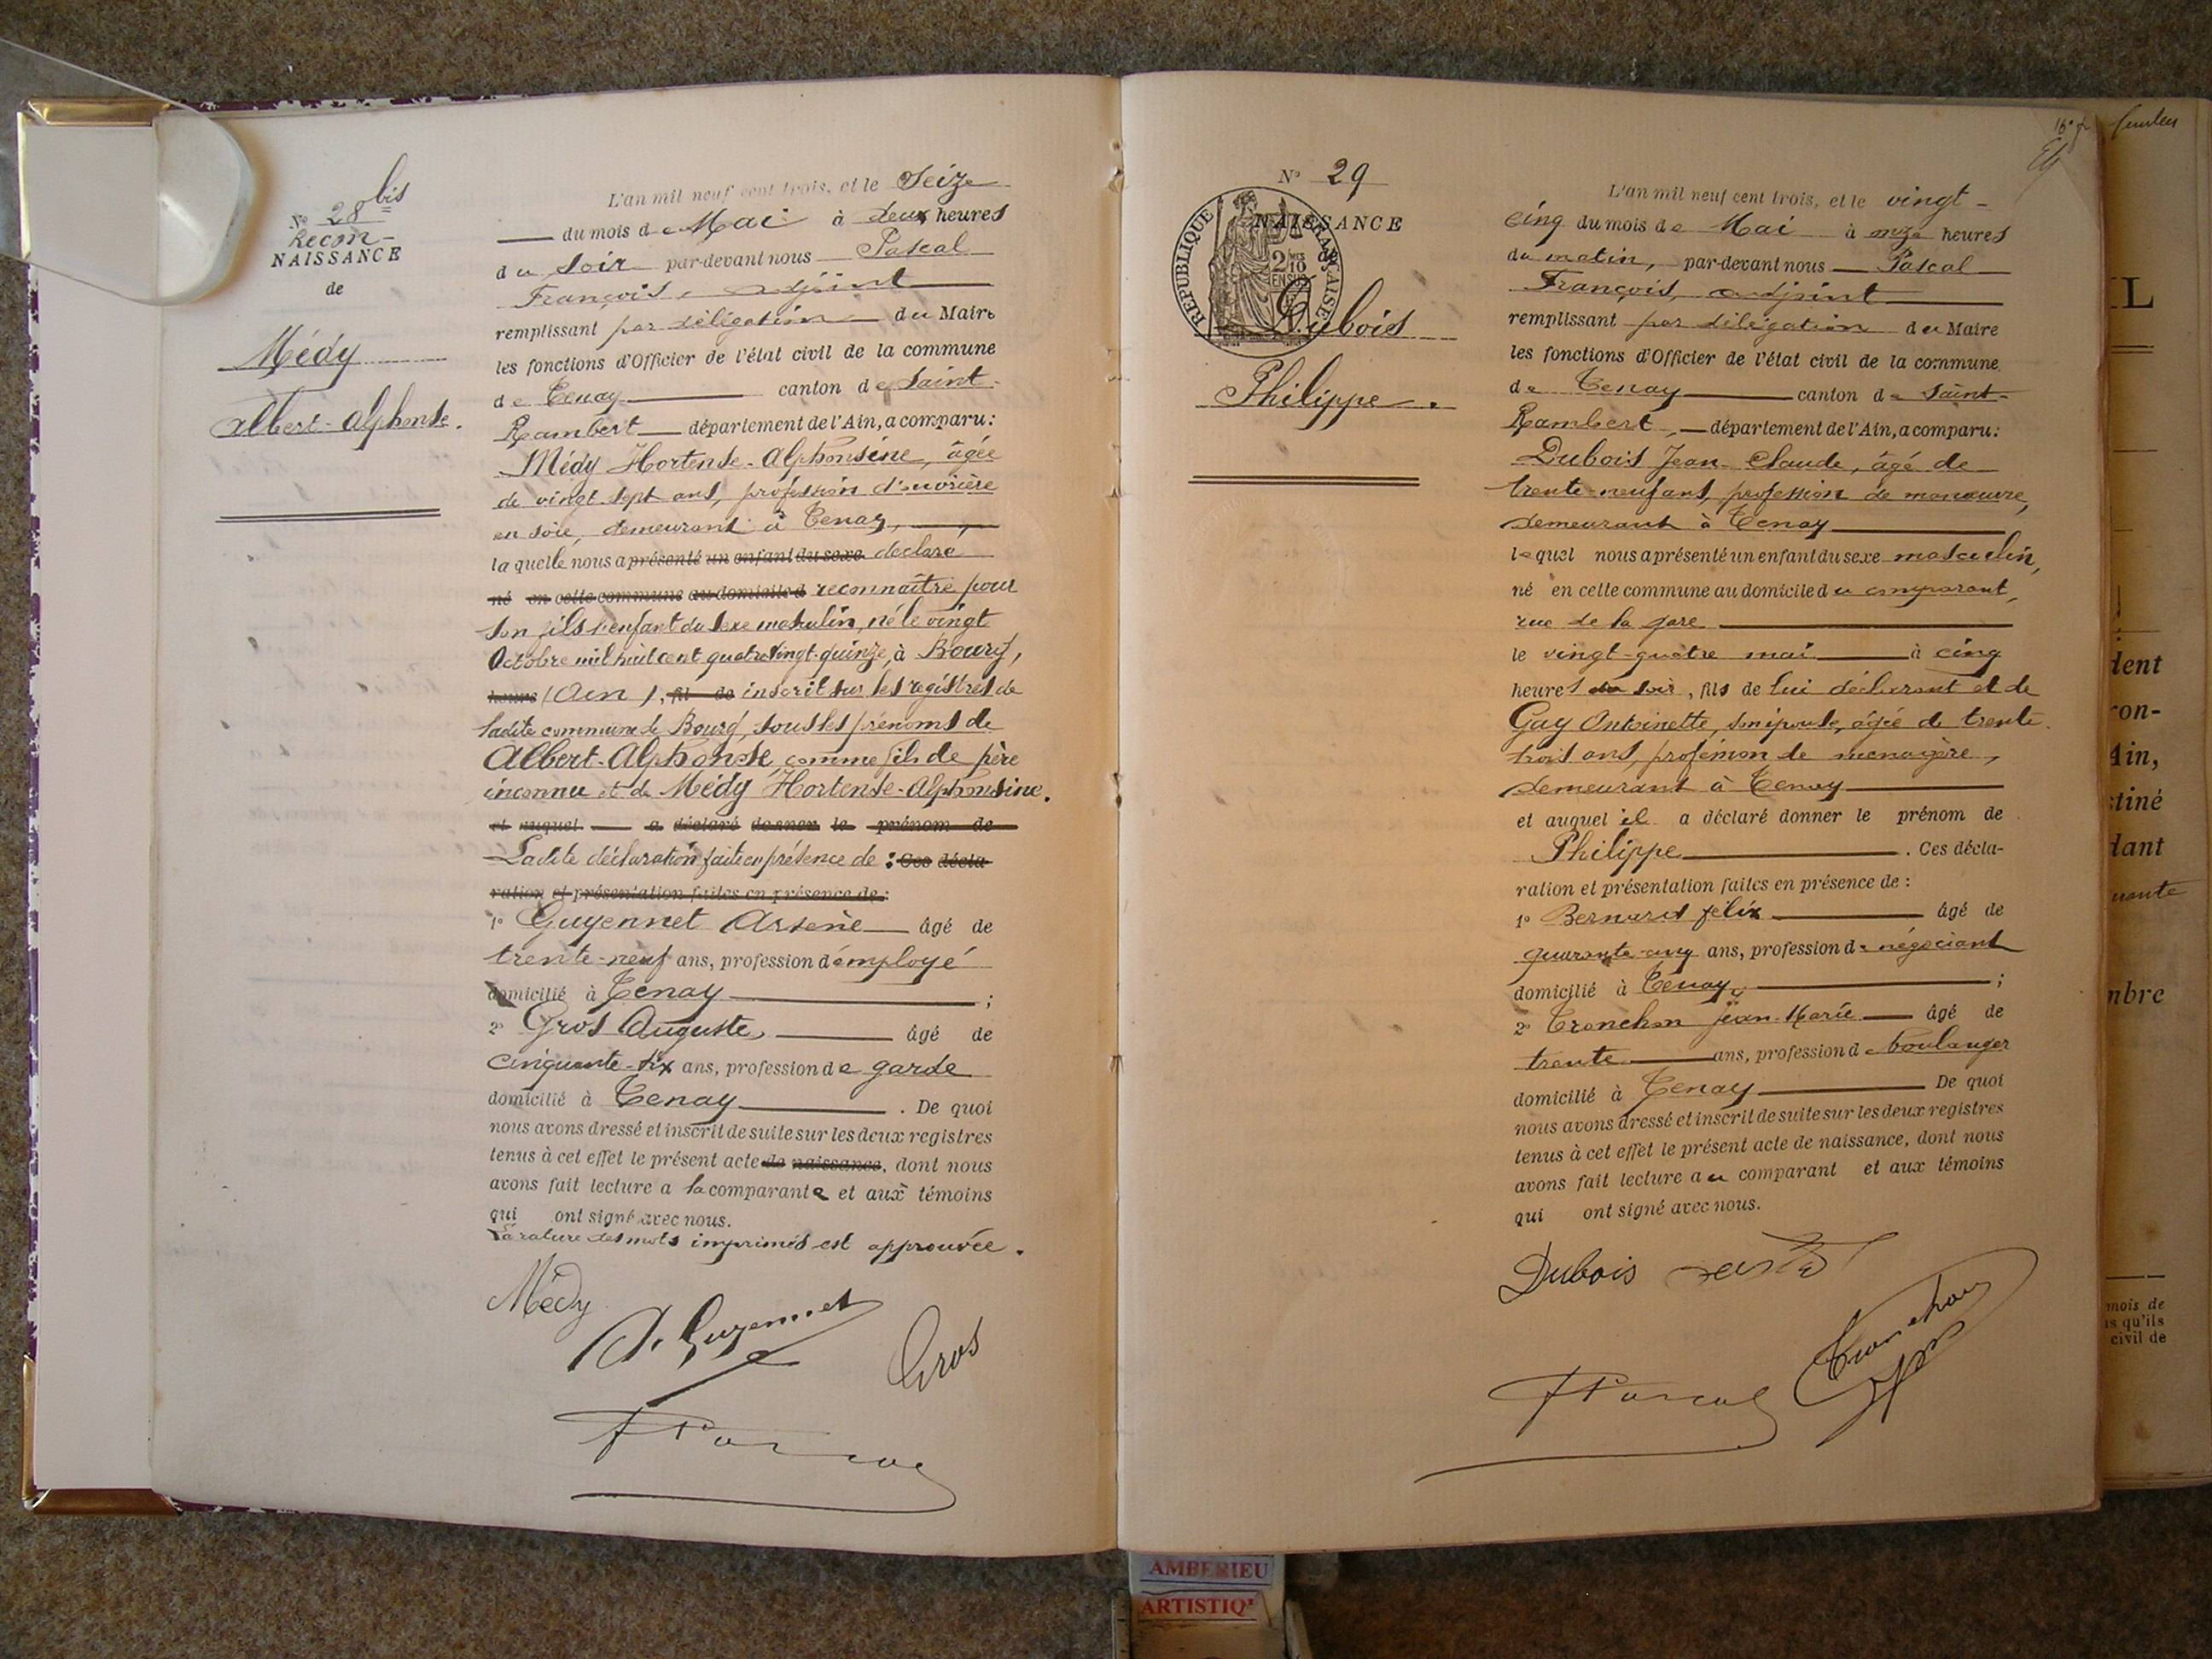 N° 28 bis
Recon-
NAISSANCE
de
Médy
Albert-Alphonse.
L'an mil neuf cent trois, et le Seize
du mois de Mai à deux heures
du soir par-devant nous Pascal
François, adjoint
remplissant par délégation du Maire
les fonctions d'Officier de l'état civil de la commune
de Tenay canton de Saint-
Rambert département de l'Ain, a comparu:
Médy Hortense-Alphonsine, âgée
de vingt sept ans, profession d'ouvrière
en soie, demeurant à Tenay,
laquelle nous a présenté un enfant du sexe déclare
né en cette commune au domicile d reconnaître pour
son fils l'enfant du sexe masculin, né le vingt
Octobre mil huit cent quatre vingt-quinze, à Bourg,
heures (Ain), fil de inscrit sur les registres de
ladite commune de Bourg, sous les prénoms de
Albert-Alphonse, comme fils de père
inconnu et de Médy Hortense-Alphonsine.
et auquel a déclaré donner le prénom de
Ladite déclaration faite en présence de : Ces décla-
ration et présentation faites en présence de :
1° Guyennet Arsène âgé de
trente-neuf ans, profession d'employé
domicilié à Tenay ;
2° Gros Auguste, âgé de
cinquante-six ans, profession de garde
domicilié à Tenay . De quoi
nous avons dressé et inscrit de suite sur les deux registres
tenus à cet effet le présent acte de naissance, dont nous
avons fait lecture a la comparante et aux témoins
qui ont signé avec nous.
La rature des mots imprimés est approuvée.
Médy
A. Guyennet
Gros
F Pascal
16e f
N° 29
NAISSANCE
de
RÉPUBLIQUE FRANÇAISE
2 MES
10
EN SUS
Dubois
Philippe.
L'an mil neuf cent trois, et le vingt-
cinq du mois de Mai à onze heures
du matin, par-devant nous Pascal
François, adjoint
remplissant par délégation du Maire
les fonctions d'Officier de l'état civil de la commune
de Tenay canton de Saint-
Rambert, département de l'Ain, a comparu:
Dubois Jean-Claude, âgé de
trente-neuf ans, profession de manœuvre,
demeurant à Tenay
lequel nous a présenté un enfant du sexe masculin,
né en cette commune au domicile du comparant,
rue de la gare
le vingt-quatre mai à cinq
heures du soir, fils de lui déclarant et de
Gay Antoinette, son épouse, âgée de trente
trois ans, profession de ménagère,
demeurant à Tenay
et auquel il a déclaré donner le prénom de
Philippe . Ces décla-
ration et présentation faites en présence de :
1° Bernard félix âgé de
quarante-cinq ans, profession de négociant
domicilié à Tenay ;
2° Tronchon Jean-Marie âgé de
trente ans, profession de boulanger
domicilié à Tenay De quoi
nous avons dressé et inscrit de suite sur les deux registres
tenus à cet effet le présent acte de naissance, dont nous
avons fait lecture au comparant et aux témoins
qui ont signé avec nous.
Dubois
Tronchon
F Pascal
IL
dent
ron-
Ain,
stiné
dant
nbre
mois de
us qu'ils
civil de
AMBERIEU
ARTISTIQ